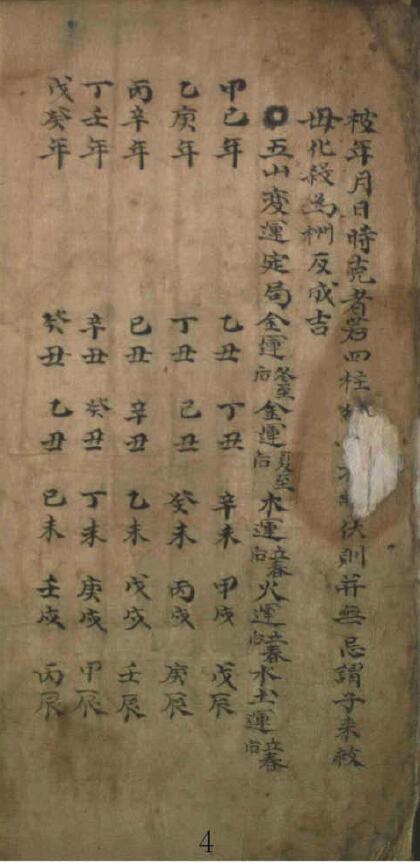 被年月日時克者若四柱不制伏則并無忌謂子来救
毋化殺為反成吉
〇五山変運定局金運冬至后金運夏至后木運立春后火運立春后水土運立春后
甲己年 乙丑 丁丑 辛未 甲戌 戊辰
乙庚年 丁丑 己丑 癸未 丙戌 庚辰
丙辛年 己丑 辛丑 乙未 戊戌 壬辰
丁壬年 辛丑 癸丑 丁未 庚戌 甲辰
戊癸年 癸丑 乙丑 己未 壬戌 丙辰
4